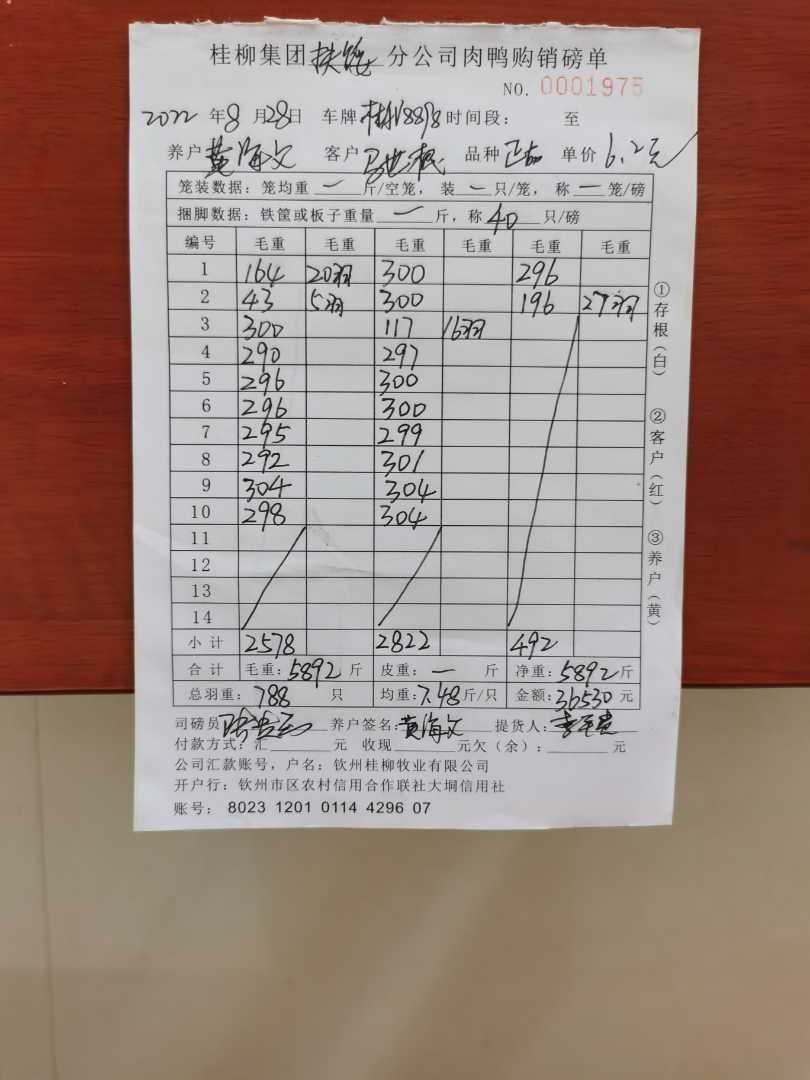 桂柳集团 分公司肉鸭购销磅单
NO. 0001975
2022 年 8 月 28 日 车牌 8898 时间段： 至
养户 黄海文 客户 品种 正品 单价 6.2元
笼装数据：笼均重 一 斤/空笼，装 一 只/笼，称 一 笼/磅
捆脚数据：铁筐或板子重量 一 斤，称 40 只/磅
编号 毛重 毛重 毛重 毛重 毛重 毛重
1 164 20羽 300 296
2 43 5羽 300 196 27羽
3 300 117 16羽
4 290 297
5 296 300
6 296 300
7 295 299
8 292 301
9 304 304
10 298 304
11
12
13
14
小计 2578 2822 492
合计 毛重：5892 斤 皮重：一 斤 净重：5892 斤
总羽重：788 只 均重：7.48 斤/只 金额：36530 元
司磅员 养户签名：黄海文 提货人：
付款方式：汇 元 收现 元欠（余）： 元
公司汇款账号，户名：钦州桂柳牧业有限公司
开户行：钦州市区农村信用合作联社大垌信用社
账号： 8023 1201 0114 4296 07
①存根（白） ②客户（红） ③养户（黄）